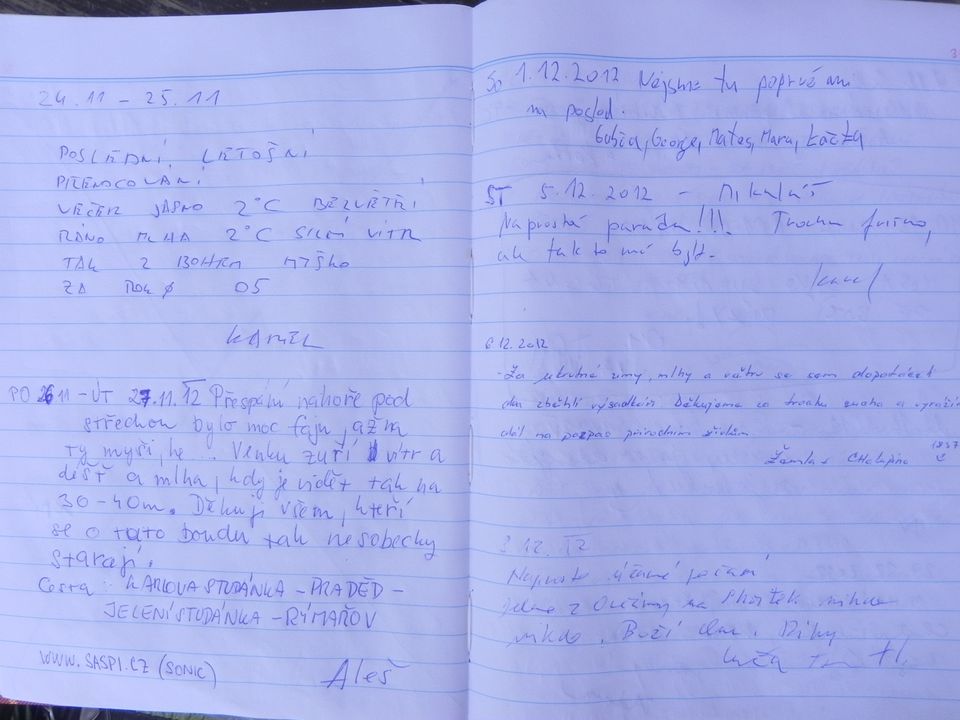 24.11 – 25.11
POSLEDNÍ, LETOŠNÍ
PŘENOCOVÁNÍ
VEČER JASNO 2°C BEZVĚTŘÍ
RÁNO MLHA 2°C SILNÍ VÍTR
TAK Z BOHEM
ZA ROK 05
KAMEL
PO 26 11 – ÚT 27.11.12 Přespání nahoře pod
střechou bylo moc fajn, až na
ty myši, he. Venku zuří vítr a
déšť a mlha, kdy je vidět tak na
30-40m. Děkuji všem, kteří
se o tuto boudu tak nesobecky
starají.
Cesta: KARLOVA STUDÁNKA – PRADĚD –
JELENÍ STUDÁNKA – RÝMAŘOV
WWW.SASPI.CZ (SONIC)
Aleš
So 1.12.2012 Nejsme tu poprvé ani
na posled.
Gubča, George, Mates, Mara, Káčka
ST 5.12.2012 – Mikuláš
Naprostá paráda!!! Trochu fučno,
ale tak to má být.
Karel
6.12.2012
-Za ukrutné zimy, mlhy a větru se sem dopotáceli
dva zběhlí výsadkáři. Děkujeme za trochu
dál na pospas přírodním živlům
12.12
Naprosto úžasné počasí
Jedeme z Ovčárny na Skřítek nikde
nikdo. Boží den. Díky